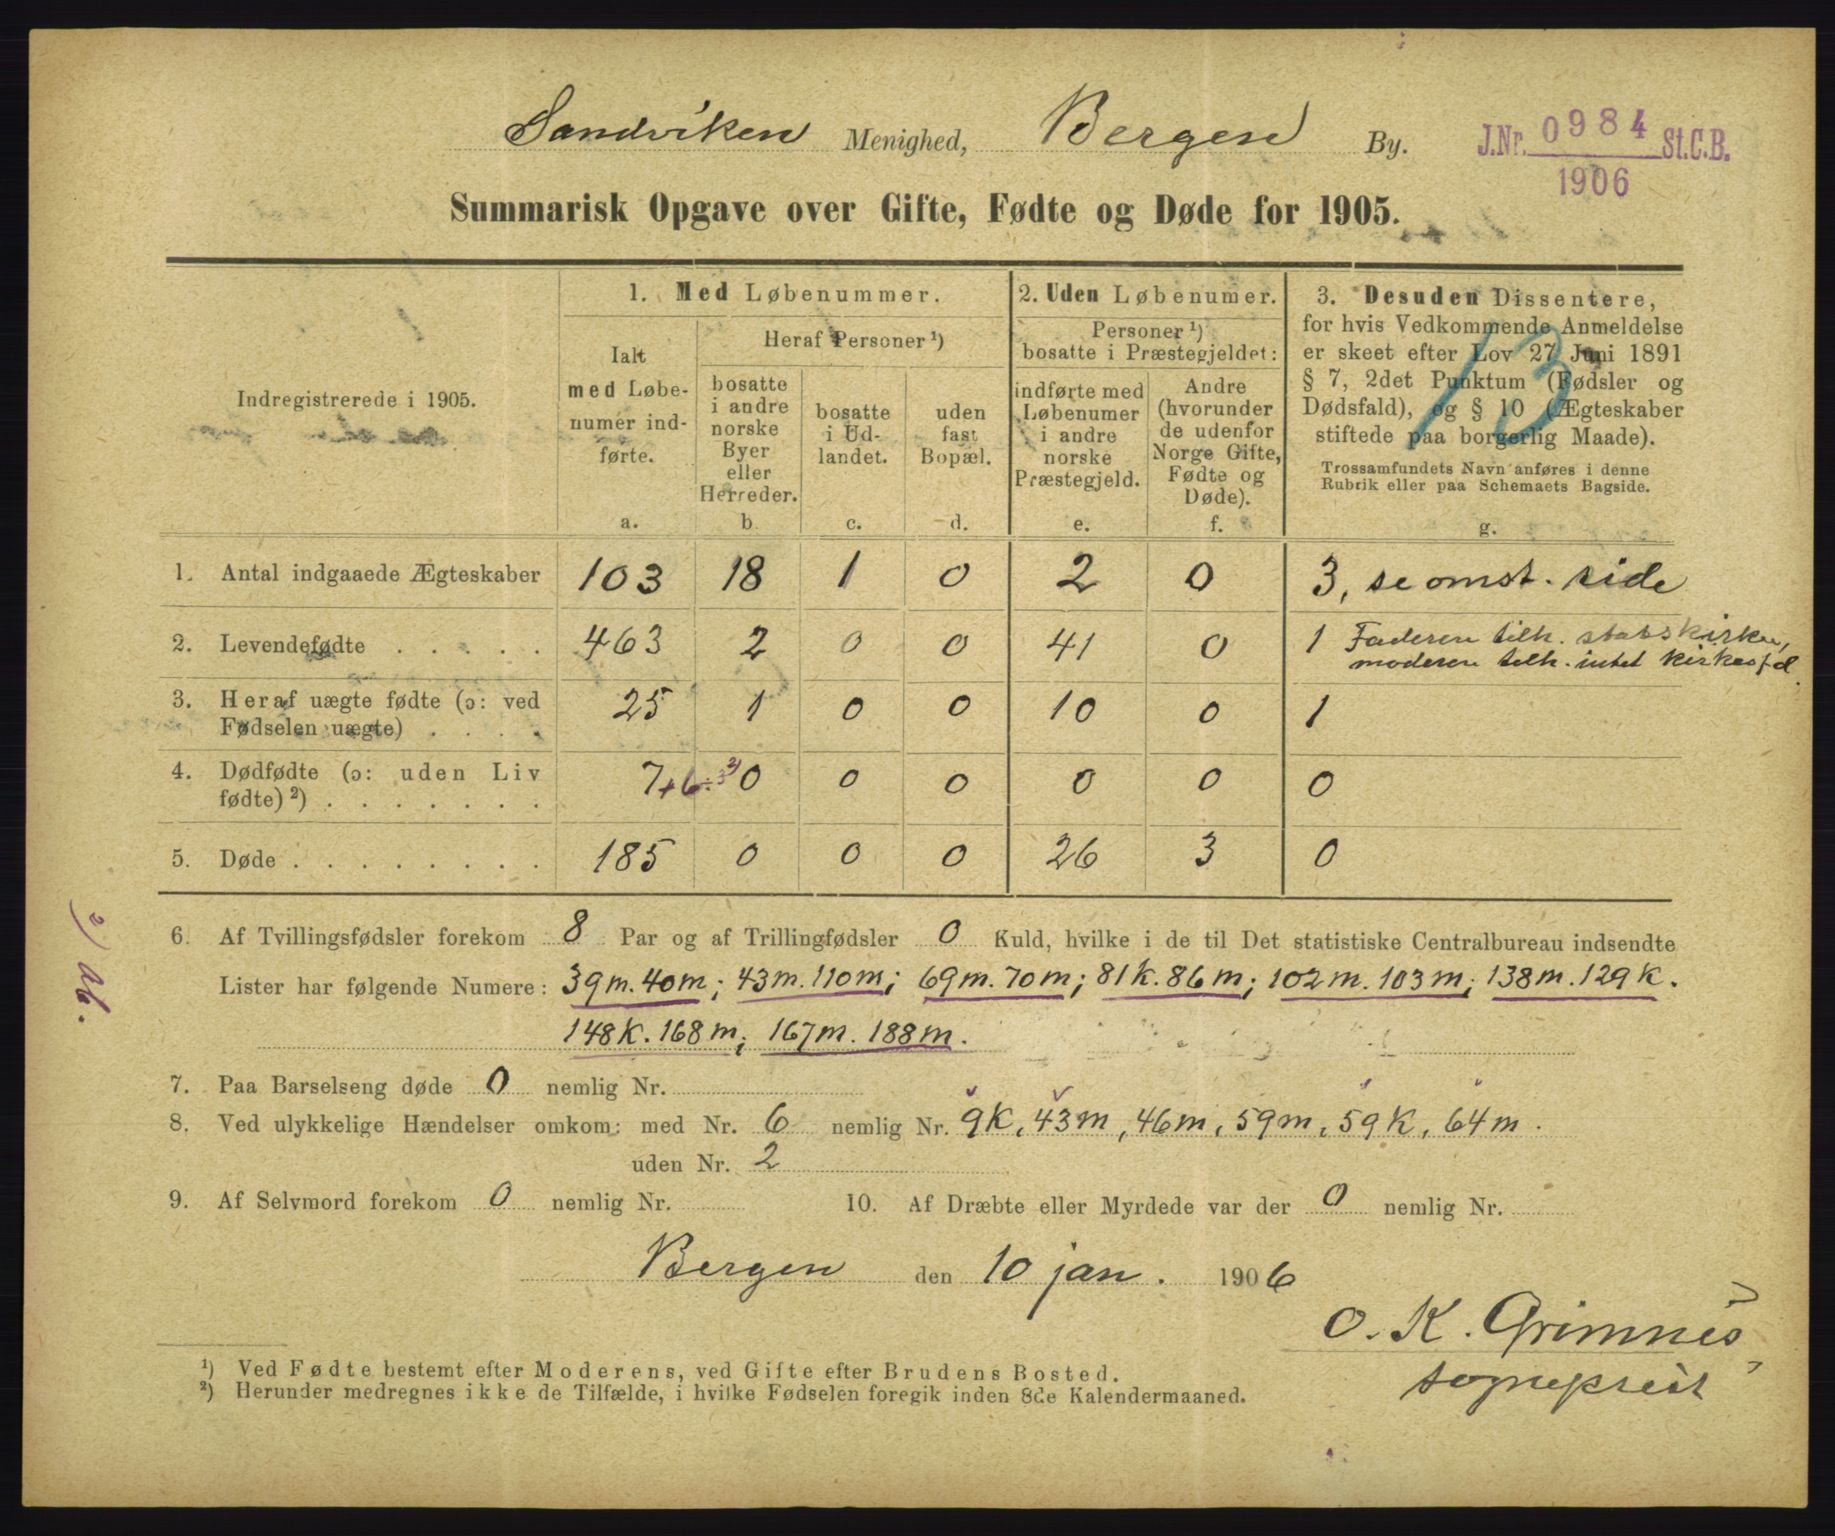 Sandviken Menighed, Bergen By. J.Nr. 0984 St.C.B.
1906
Summarisk Opgave over Gifte, Fødte og Døde for 1905.
Indregistrerede i 1905.
1. Med Løbenummer.
Ialt
med Løbe-
numer ind-
førte.
a.
Heraf Personer ¹)
bosatte
i andre
norske
Byer
eller
Herreder.
b.
bosatte
i Ud-
landet.
c.
uden
fast
Bopæl.
d.
2. Uden Løbenumer.
Personer ¹)
bosatte i Præstegjeldet:
indførte med
Løbenumer
i andre
norske
Præstegjeld.
e.
Andre
(hvorunder
de udenfor
Norge Gifte,
Fødte og
Døde).
f.
3. Desuden Dissentere,
for hvis Vedkommende Anmeldelse
er skeet efter Lov 27 Juni 1891
§ 7, 2det Punktum (Fødsler og
Dødsfald), og § 10 (Ægteskaber
stiftede paa borgerlig Maade).
Trossamfundets Navn anføres i denne
Rubrik eller paa Schemaets Bagside.
g.
13
1. Antal indgaaede Ægteskaber 103 18 1 0 2 0 3, se omst. side
2. Levendefødte . . . . . 463 2 0 0 41 0 1 Faderen tilh. statskirken,
moderen tilh. intet kirkesfd.
3. Heraf uægte fødte (ɔ: ved
Fødselen uægte) . . . . 25 1 0 0 10 0 1
4. Dødfødte (ɔ: uden Liv
fødte) ²) . . . . . . . 7 + 6 ÷ 3 ²) 0 0 0 0 0 0
5. Døde . . . . . . . . 185 0 0 0 26 3 0
6. Af Tvillingsfødsler forekom 8 Par og af Trillingfødsler 0 Kuld, hvilke i de til Det statistiske Centralbureau indsendte
Lister har følgende Numere: 39m. 40m; 43m. 110m; 69m. 70m; 81k. 86m; 102m. 103m; 138m. 129k.
148k. 168m; 167m. 188m.
7. Paa Barselseng døde 0 nemlig Nr.
8. Ved ulykkelige Hændelser omkom: med Nr. 6 nemlig Nr. 9k, 43m, 46m, 59m, 59k, 64m.
uden Nr. 2
9. Af Selvmord forekom 0 nemlig Nr. 10. Af Dræbte eller Myrdede var der 0 nemlig Nr.
Bergen den 10 jan. 1906
O. K. Grimnes
sogneprest
¹) Ved Fødte bestemt efter Moderens, ved Gifte efter Brudens Bosted.
²) Herunder medregnes ikke de Tilfælde, i hvilke Fødselen foregik inden 8de Kalendermaaned.
²) Ab.